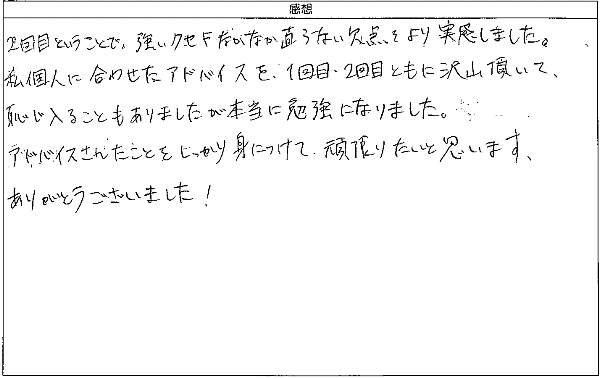 感想
2回目ということで、強いクセやなかなか直らない欠点をより実感しました。
私個人に合わせたアドバイスを、1回目・2回目ともに沢山頂いて、
恥じ入ることもありましたが本当に勉強になりました。
アドバイスされたことをしっかり身につけて、頑張りたいと思います、
ありがとうございました！